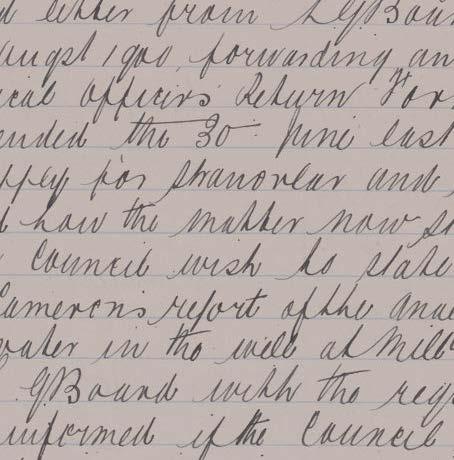 d letter from LGBoar
August 1900, forwarding an
ical Officers Return For
ended the 30 June last
pply for Stranorlar and
d how the matter now st
Council wish to state
Camerons report of the ana
water in the well at Mill
GBoard with the requ
informed if the Council